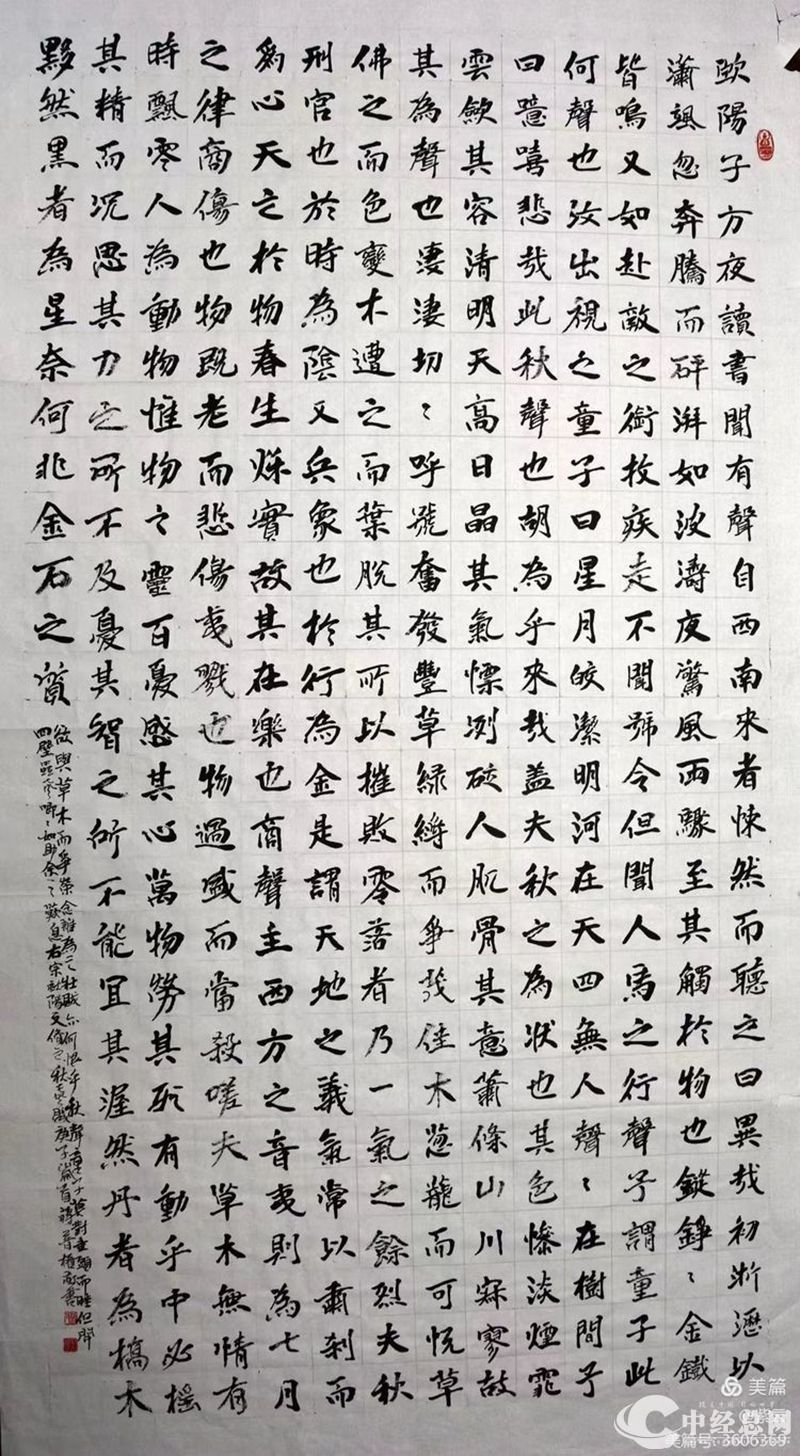 欧陽子方夜讀書聞有聲自西南来者悚然而聽之曰異哉初淅瀝以
瀟颯忽奔騰而砰湃如波濤夜驚風雨驟至其觸於物也鏦錚〻金鐵
皆鳴又如赴敵之銜枚疾走不聞號令但聞人馬之行聲予謂童子此
何聲也汝出視之童子曰星月皎潔明河在天四無人聲〻在樹間予
曰噫嘻悲哉此秋聲也胡為乎来哉盖夫秋之為状也其色惨淡煙霏
雲斂其容清明天高日晶其氣慄冽砭人肌骨其意蕭條山川寂寥故
其為聲也淒淒切〻呼號奮發豐草緑縟而争茂佳木葱蘢而可悦草
佛之而色變木遭之而葉脱其所以摧敗零落者乃一氣之餘烈夫秋
刑官也於時為陰又兵象也於行為金是謂天地之義氣常以肅刹而
為心天之於物春生秋實故其在樂也商聲主西方之音夷則為七月
之律商傷也物既老而悲傷夷戮也物過盛而當殺嗟夫草木無情有
時飄零人為動物惟物之靈百憂感其心萬物勞其形有動乎中必摇
其精而况思其力之所不及憂其智之所不能宜其渥然丹者為槁木
黟然黒者為星奈何非金石之質
欲與草木而争榮念誰為之牀賊亦何恨乎秋聲童子莫對垂頭而睡但聞
四壁蟲聲唧〻如助余之歎息右宋欧陽文修
美篇
中经总网
美篇号:3606369